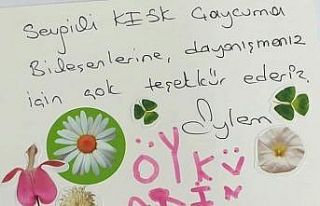 Sevgili KESK Çaycuma
Bileşenlerine, dayanışmanız
için çok teşekkür ederiz.
Eylem
ÖYKÜ